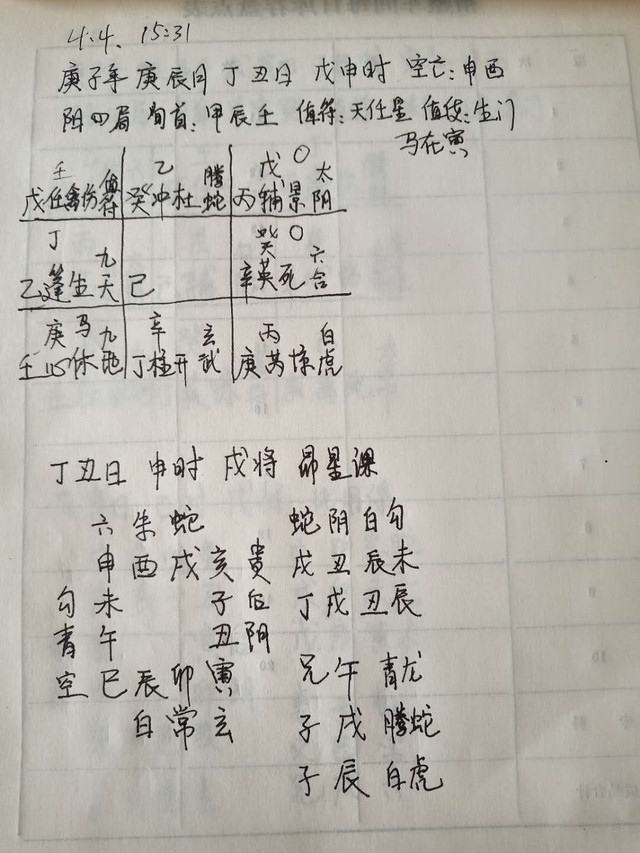 4.4. 15:31
庚子年 庚辰月 丁丑日 戊申时 空亡:申酉
阴四局 旬首:甲辰壬 值符:天任星 值使:生门
马在寅
壬 乙 戊 〇 太
戊任禽伤值符 癸冲杜螣蛇 丙辅景阴
丁 九 癸 〇 六
乙蓬生天 己 辛英死合
庚 马 九 辛 玄 丙 白
壬心休地 丁柱开武 庚芮惊虎
丁丑日 申时 戌将 昴星课
六 朱 蛇 蛇 阴 白 勾
申 酉 戌 亥 贵 戌 丑 辰 未
勾 未 子 后 丁 戌 丑 辰
青 午 丑 阴
空 巳 辰 卯 寅 兄 午 青龙
白 常 玄 子 戌 螣蛇
子 辰 白虎